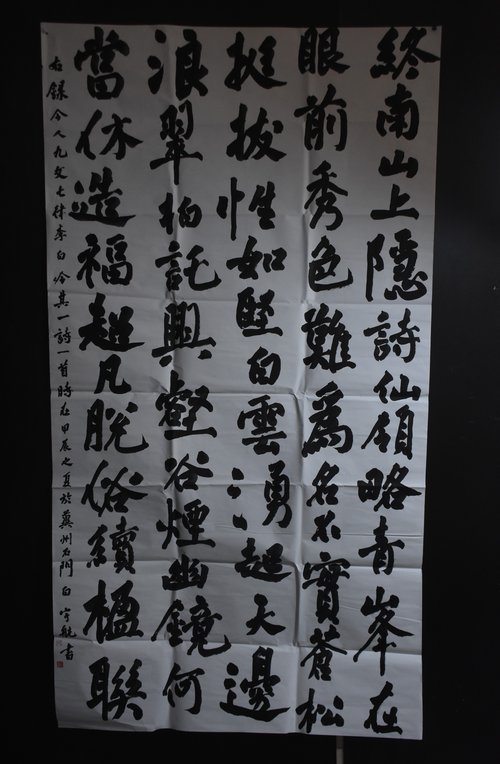 終南山上隱詩仙領略青峯在
眼前秀色難為名不實蒼松
挺拔性如堅白雲湧起天邊
浪翠柏託興壑谷煙幽鏡何
當休造福超凡脫俗續楹聯
右錄今人九文七律李白吟其一詩一首時在甲辰之夏於冀州石門白宇航書